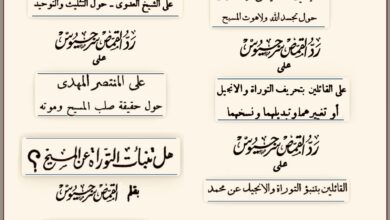 حول تجسد الله ولاهوت المسيح
رد القمص سرجيوس
على
على القائلين بتحريف التوراة والانجيل
أو تغييرهما وتبديلهما ونسخهما
رد القمص سرجيوس
على
القائلين بتنبؤ التوراة والانجيل عن محمد
على الشيخ العدوى - حول التثليث والتوحيد
رد القمص سرجيوس
على
على المنتصر المهدى
حول حقيقة صلب المسيح وموته
هل تنبأت التوراة عن المسيح ؟
بقلم القمص سرجيوس